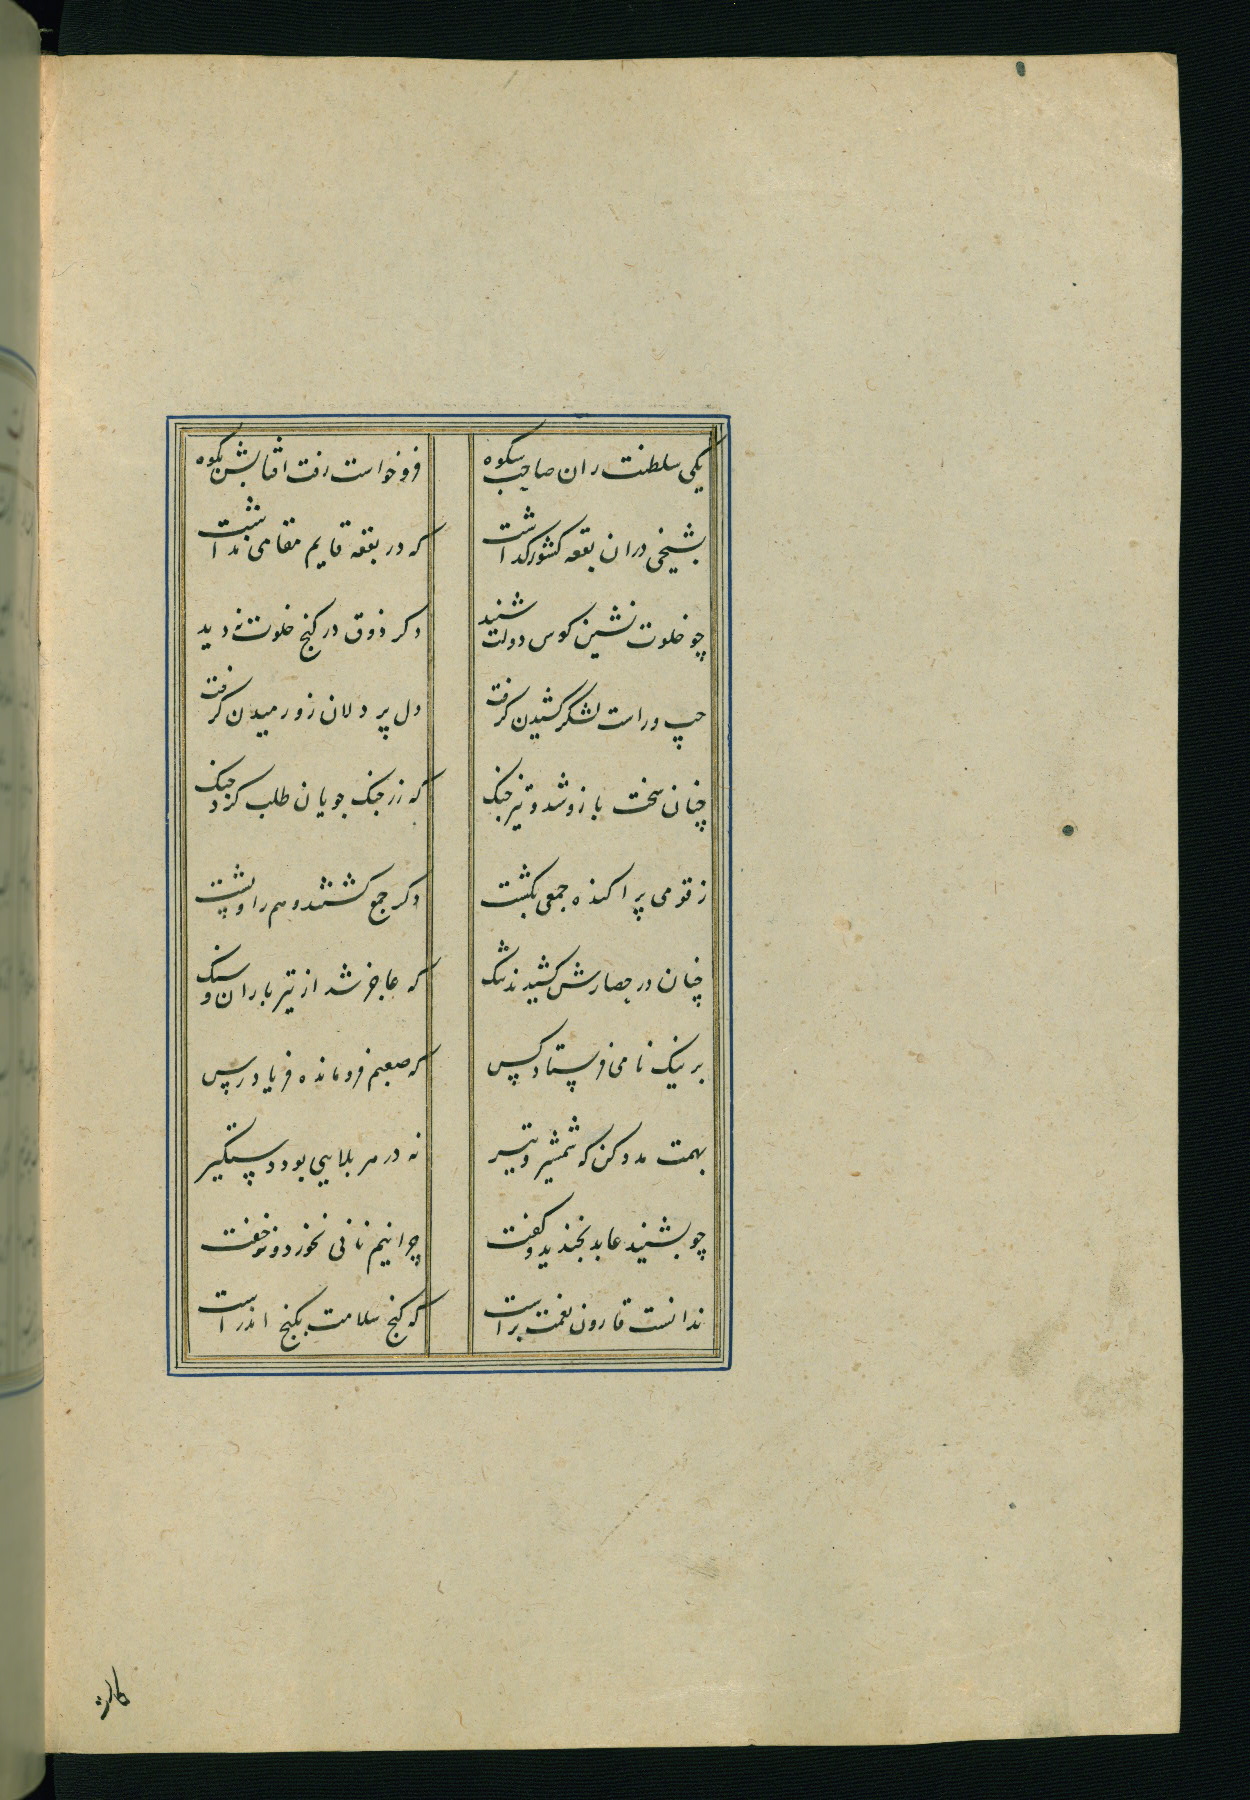 یکی سلطنت ران صاحب شکوه فرو خواست رفت افتابش بکوه
بشیخی دران بقعه کشور کذاشت که در بقعه قایم مقامی نداشت
چو خلوت نشین کوس دولت شنید دکر ذوق در کنج خلوت ندید
چپ و راست لشکر کشیدن کرفت دل پر دلان زو رمیدن کرفت
چنان سخت بازو شد و تیز جنک که زر جنک جویان طلب کرد جنک
ز قومی پراکنده جمعی بکشت دکر جمع کشتند و هم را و پشت
چنان در حصارش کشیدند تنک که عاجز شد از تیر باران و سنک
بر نیک نامی فرستاد کس که صعبم فرومانده فریاد رس
بهمت مدد کن که شمشیر و تیر نه در هر بلایی بود دستکیر
چو بشنید عابد بخندید و کفت چرا نیم نانی نخورد و نخفت
ندانست قارون نعمت پراست که کنج سلامت بکنج اندراست